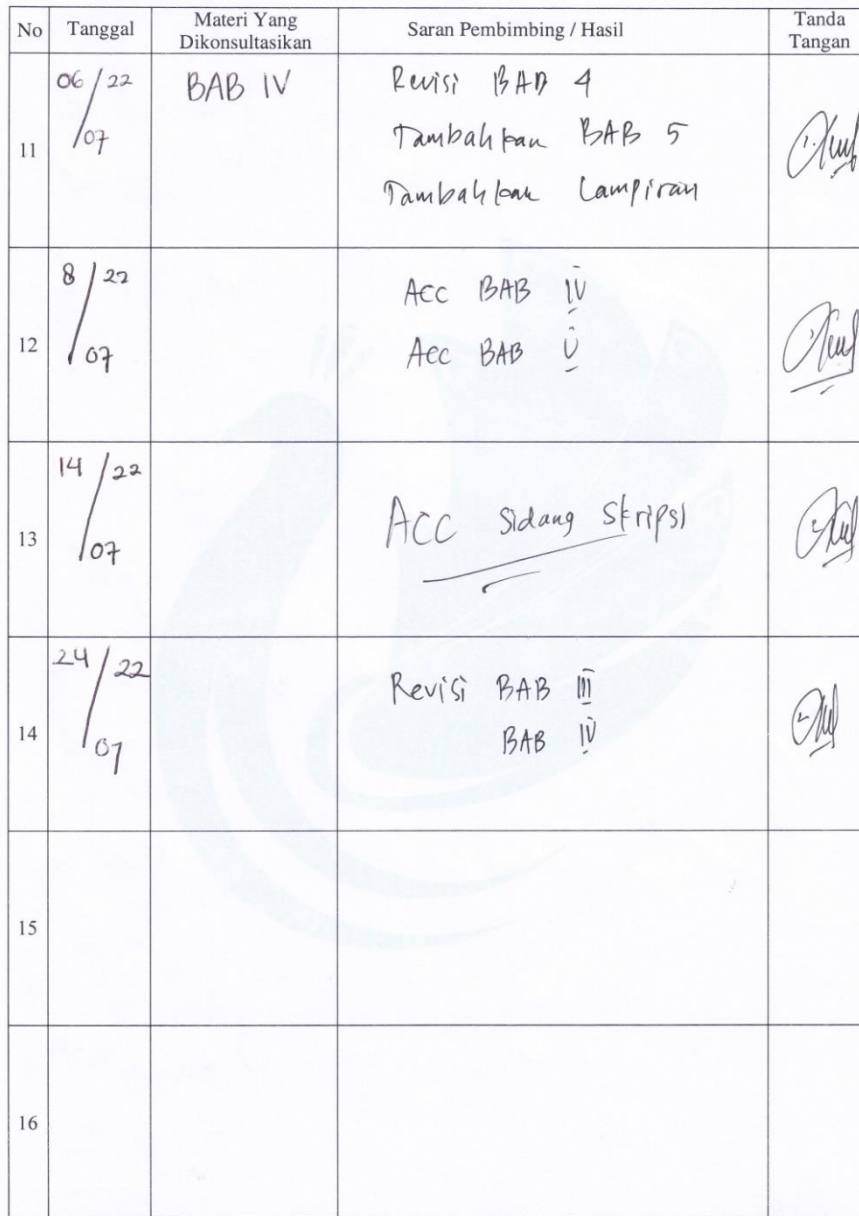 No Tanggal Materi Yang Dikonsultasikan Saran Pembimbing / Hasil Tanda Tangan
11 06/22 07 BAB IV Revisi BAB 4
Tambahkan BAB 5
Tambahkan Lampiran
12 8/22 07 Acc BAB IV
Acc BAB V
13 14/22 07 ACC Sidang Skripsi
14 24/22 07 Revisi BAB III
BAB IV
15
16